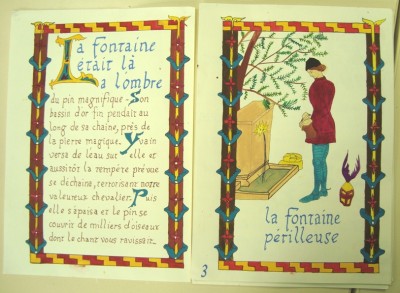 La fontaine
était là
a lombre
du pin magnifique - Son
bassin d'or fin pendait au
long de sa chaine, près de
la pierre magique. Yvain
versa de l'eau sur elle et
aussitôt la tempête prévue
se déchaine, terrorisant notre
valeureux chevalier. Puis
elle s'apaisa et le pin se
couvrit de milliers d'oiseaux
dont le chant vous ravissait..
la fontaine
périlleuse
3